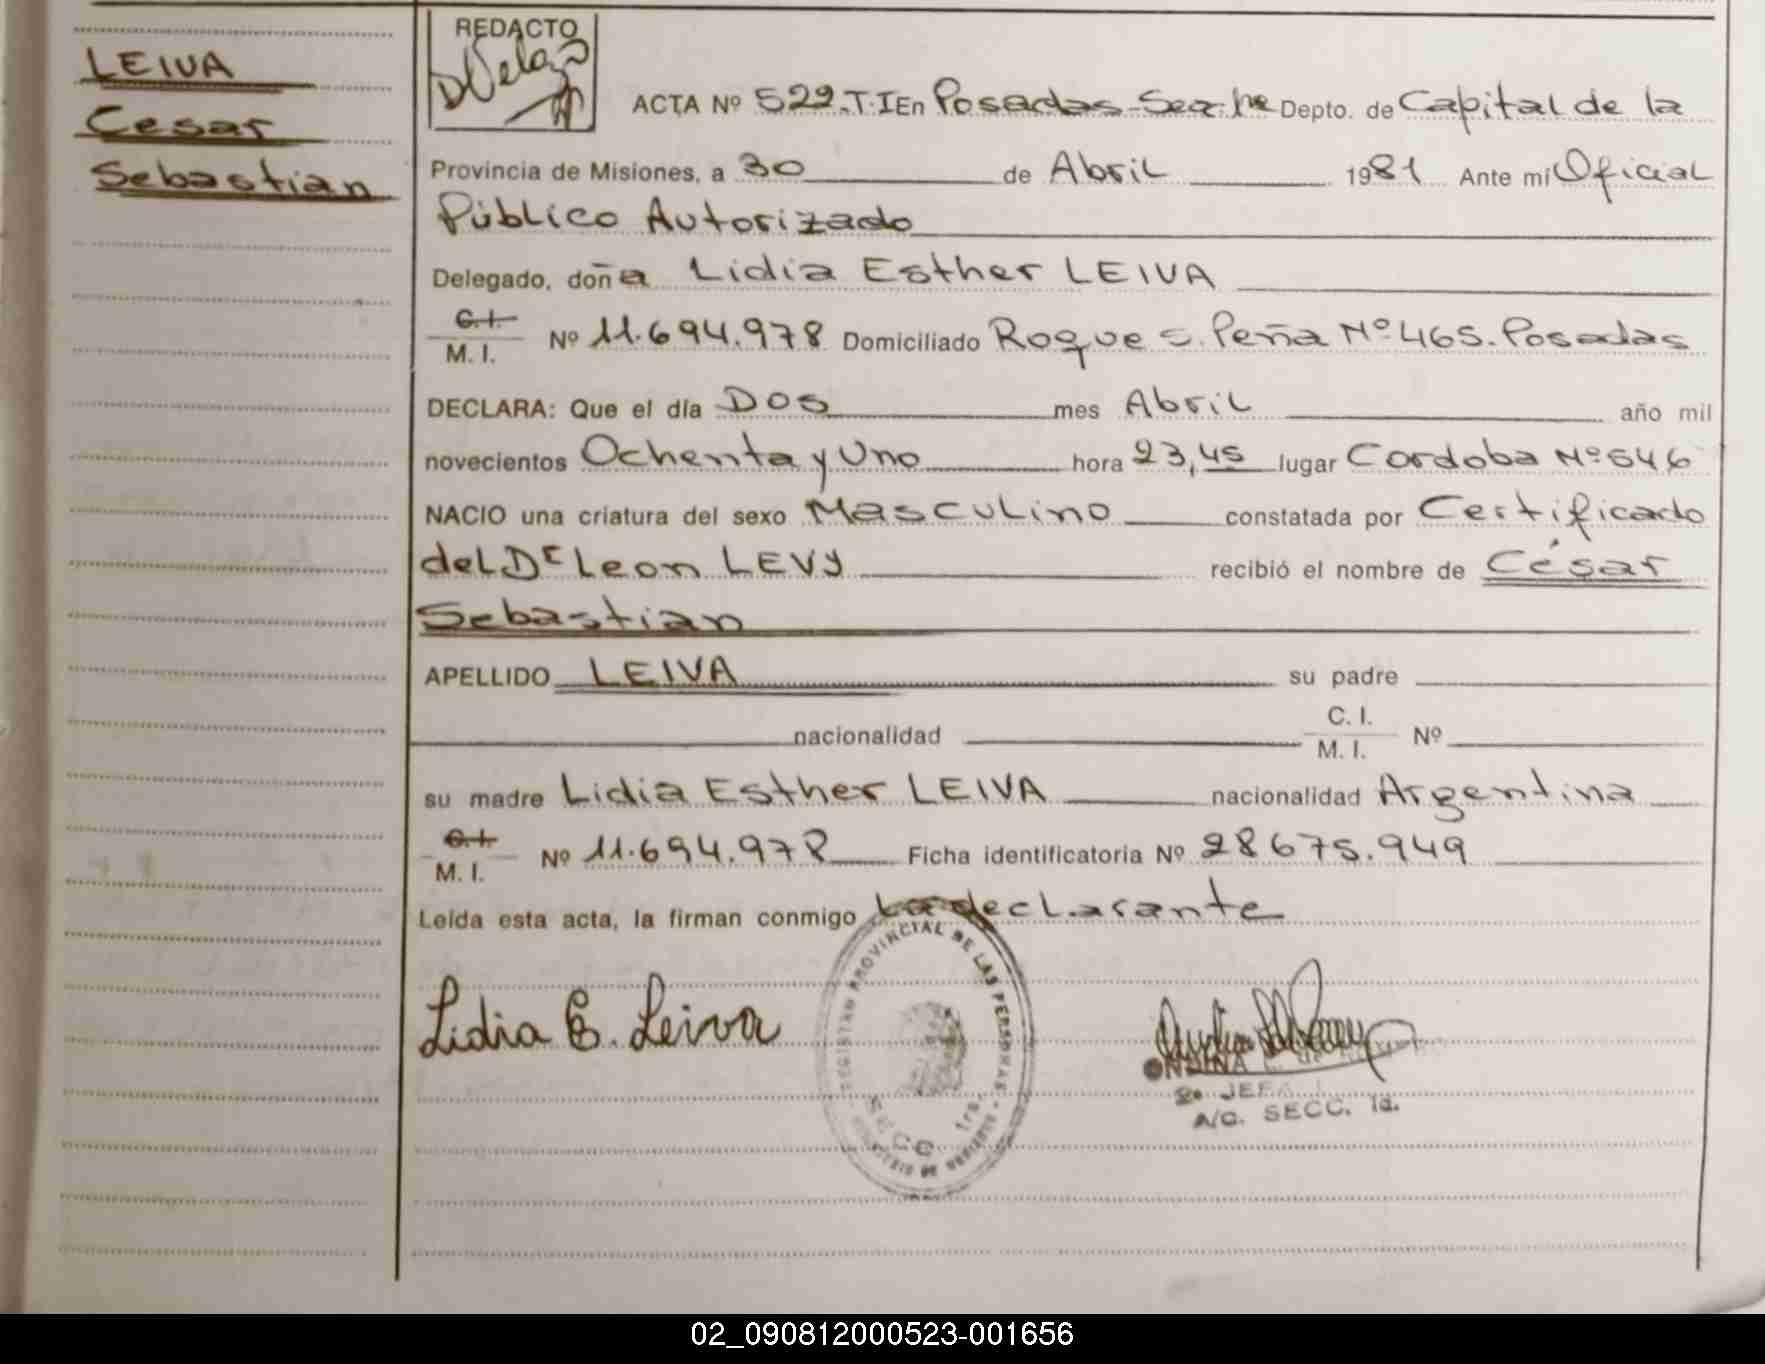 LEIVA
Cesar
Sebastian
REDACTO
ACTA Nº 529.T.I En Posadas Sec. 1ra Depto. de Capital de la
Provincia de Misiones, a 30 de Abril 1981 Ante mí Oficial
Público Autorizado
Delegado, doña Lidia Esther LEIVA
C.I.
M. I. Nº 11.694.978 Domiciliado Roque S. Peña Nº 465. Posadas
DECLARA: Que el día Dos mes Abril año mil
novecientos Ochenta y Uno hora 23,45 lugar Cordoba Nº 546
NACIO una criatura del sexo Masculino constatada por Certificado
del Dr Leon LEVY recibió el nombre de César
Sebastian
APELLIDO LEIVA su padre
nacionalidad C. I.
M. I. Nº
su madre Lidia Esther LEIVA nacionalidad Argentina
C.I.
M. I. Nº 11.694.978 Ficha identificatoria Nº 28675.949
Leída esta acta, la firman conmigo La declarante
Lidia E. Leiva
REGISTRO PROVINCIAL DE LAS PERSONAS
SECC. 1ra.
2º JEFA
A/C. SECC. 1a.
02_090812000523-001656